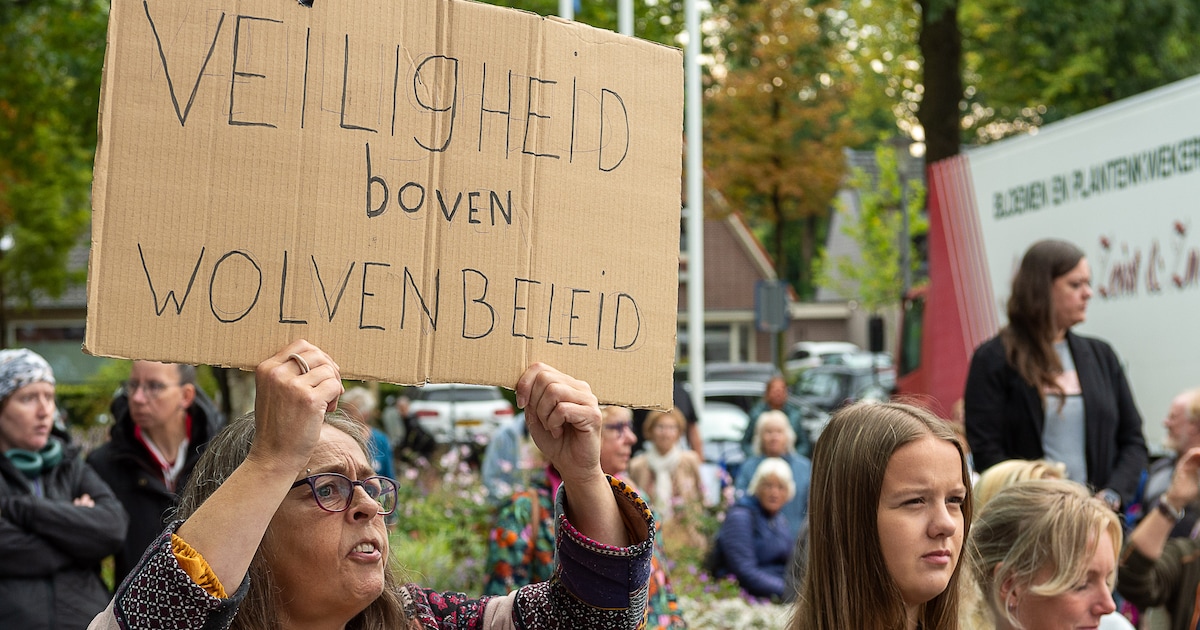 VEILIgHEID
boven
WOLVENBELEID
BLOEMEN EN PLANTENKWEKER